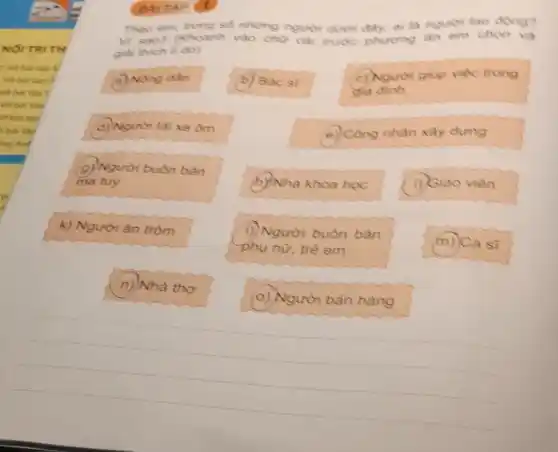 Bài tập 1
Theo em, trong số những người dưới đây, ai là người lao động?
Vì sao? (Khoanh vào chữ cái trước phương án em chọn và
giải thích lí do)
NỐI TRI TH
a) Nông dân
b) Bác sĩ
c) Người giúp việc trong
gia đình
d) Người lái xe ôm
e) Công nhân xây dựng
g) Người buôn bán
ma tuý
h) Nhà khoa học
i) Giáo viên
k) Người ăn trộm
l) Người buôn bán
phụ nữ, trẻ em
m) Ca sĩ
n) Nhà thơ
o) Người bán hàng